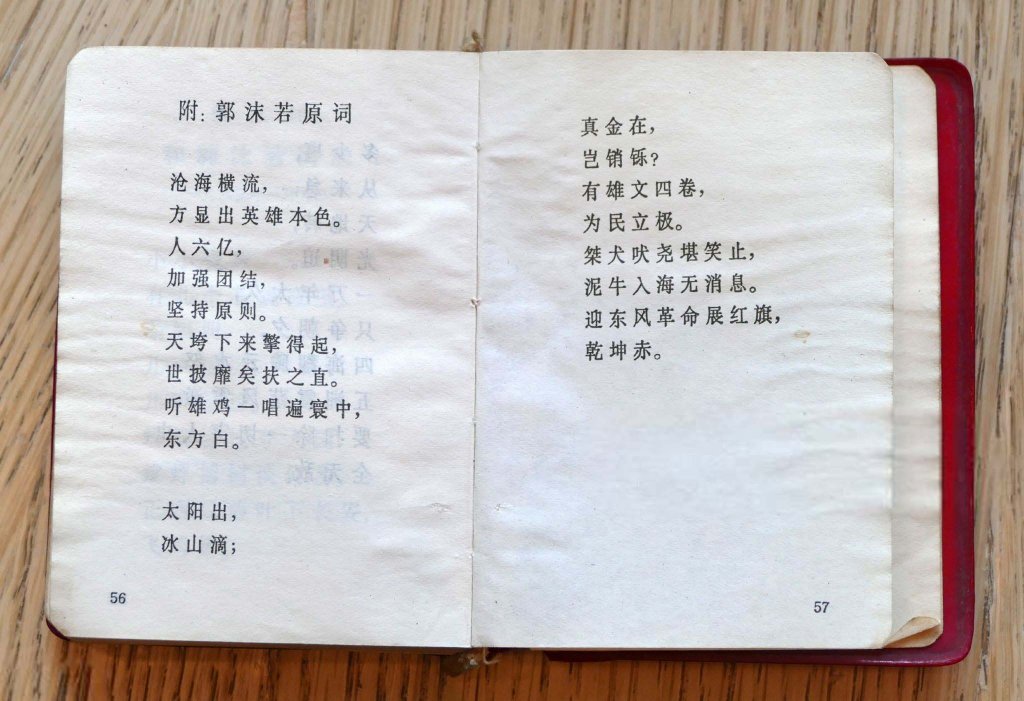 附：郭沫若原词
沧海横流，
方显出英雄本色。
人六亿，
加强团结，
坚持原则。
天垮下来擎得起，
世披靡矣扶之直。
听雄鸡一唱遍寰中，
东方白。
太阳出，
冰山滴；
56
真金在，
岂销铄？
有雄文四卷，
为民立极。
桀犬吠尧堪笑止，
泥牛入海无消息。
迎东风革命展红旗，
乾坤赤。
57